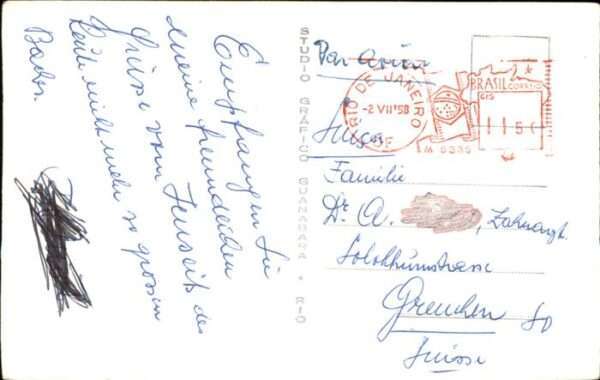 Empfangen Sie
meine freundlichen
Grüsse vom Jenseits des
heute nicht mehr so grossen
Baches.
STUDIO GRÁFICO GUANABARA * RIO
Par avion
RIO DE JANEIRO
-2 VII 58
DF
BRASIL CORREIO
CrS
115
M
Suíça
Familie
Dr. A. , Zahnarzt
Solothurnstrasse
Grenchen SO
Suisse